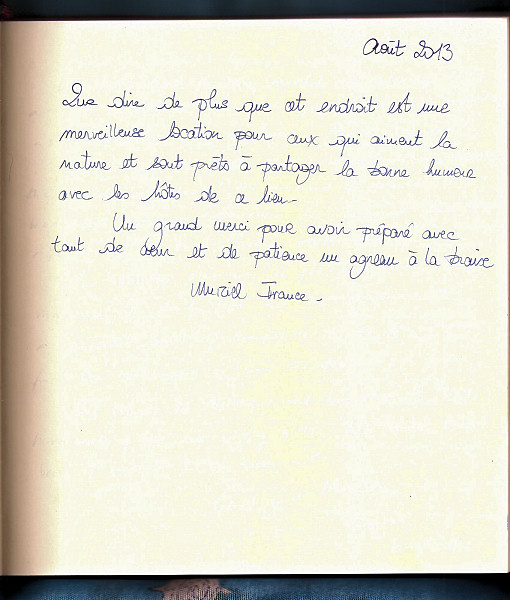 Août 2013
Que dire de plus que cet endroit est une
merveilleuse location pour ceux qui aiment la
nature et sont prêts à partager la bonne humeur
avec les hôtes de ce lieu.
Un grand merci pour avoir préparé avec
tant de cœur et de patience un agneau à la braise
Muriel France.